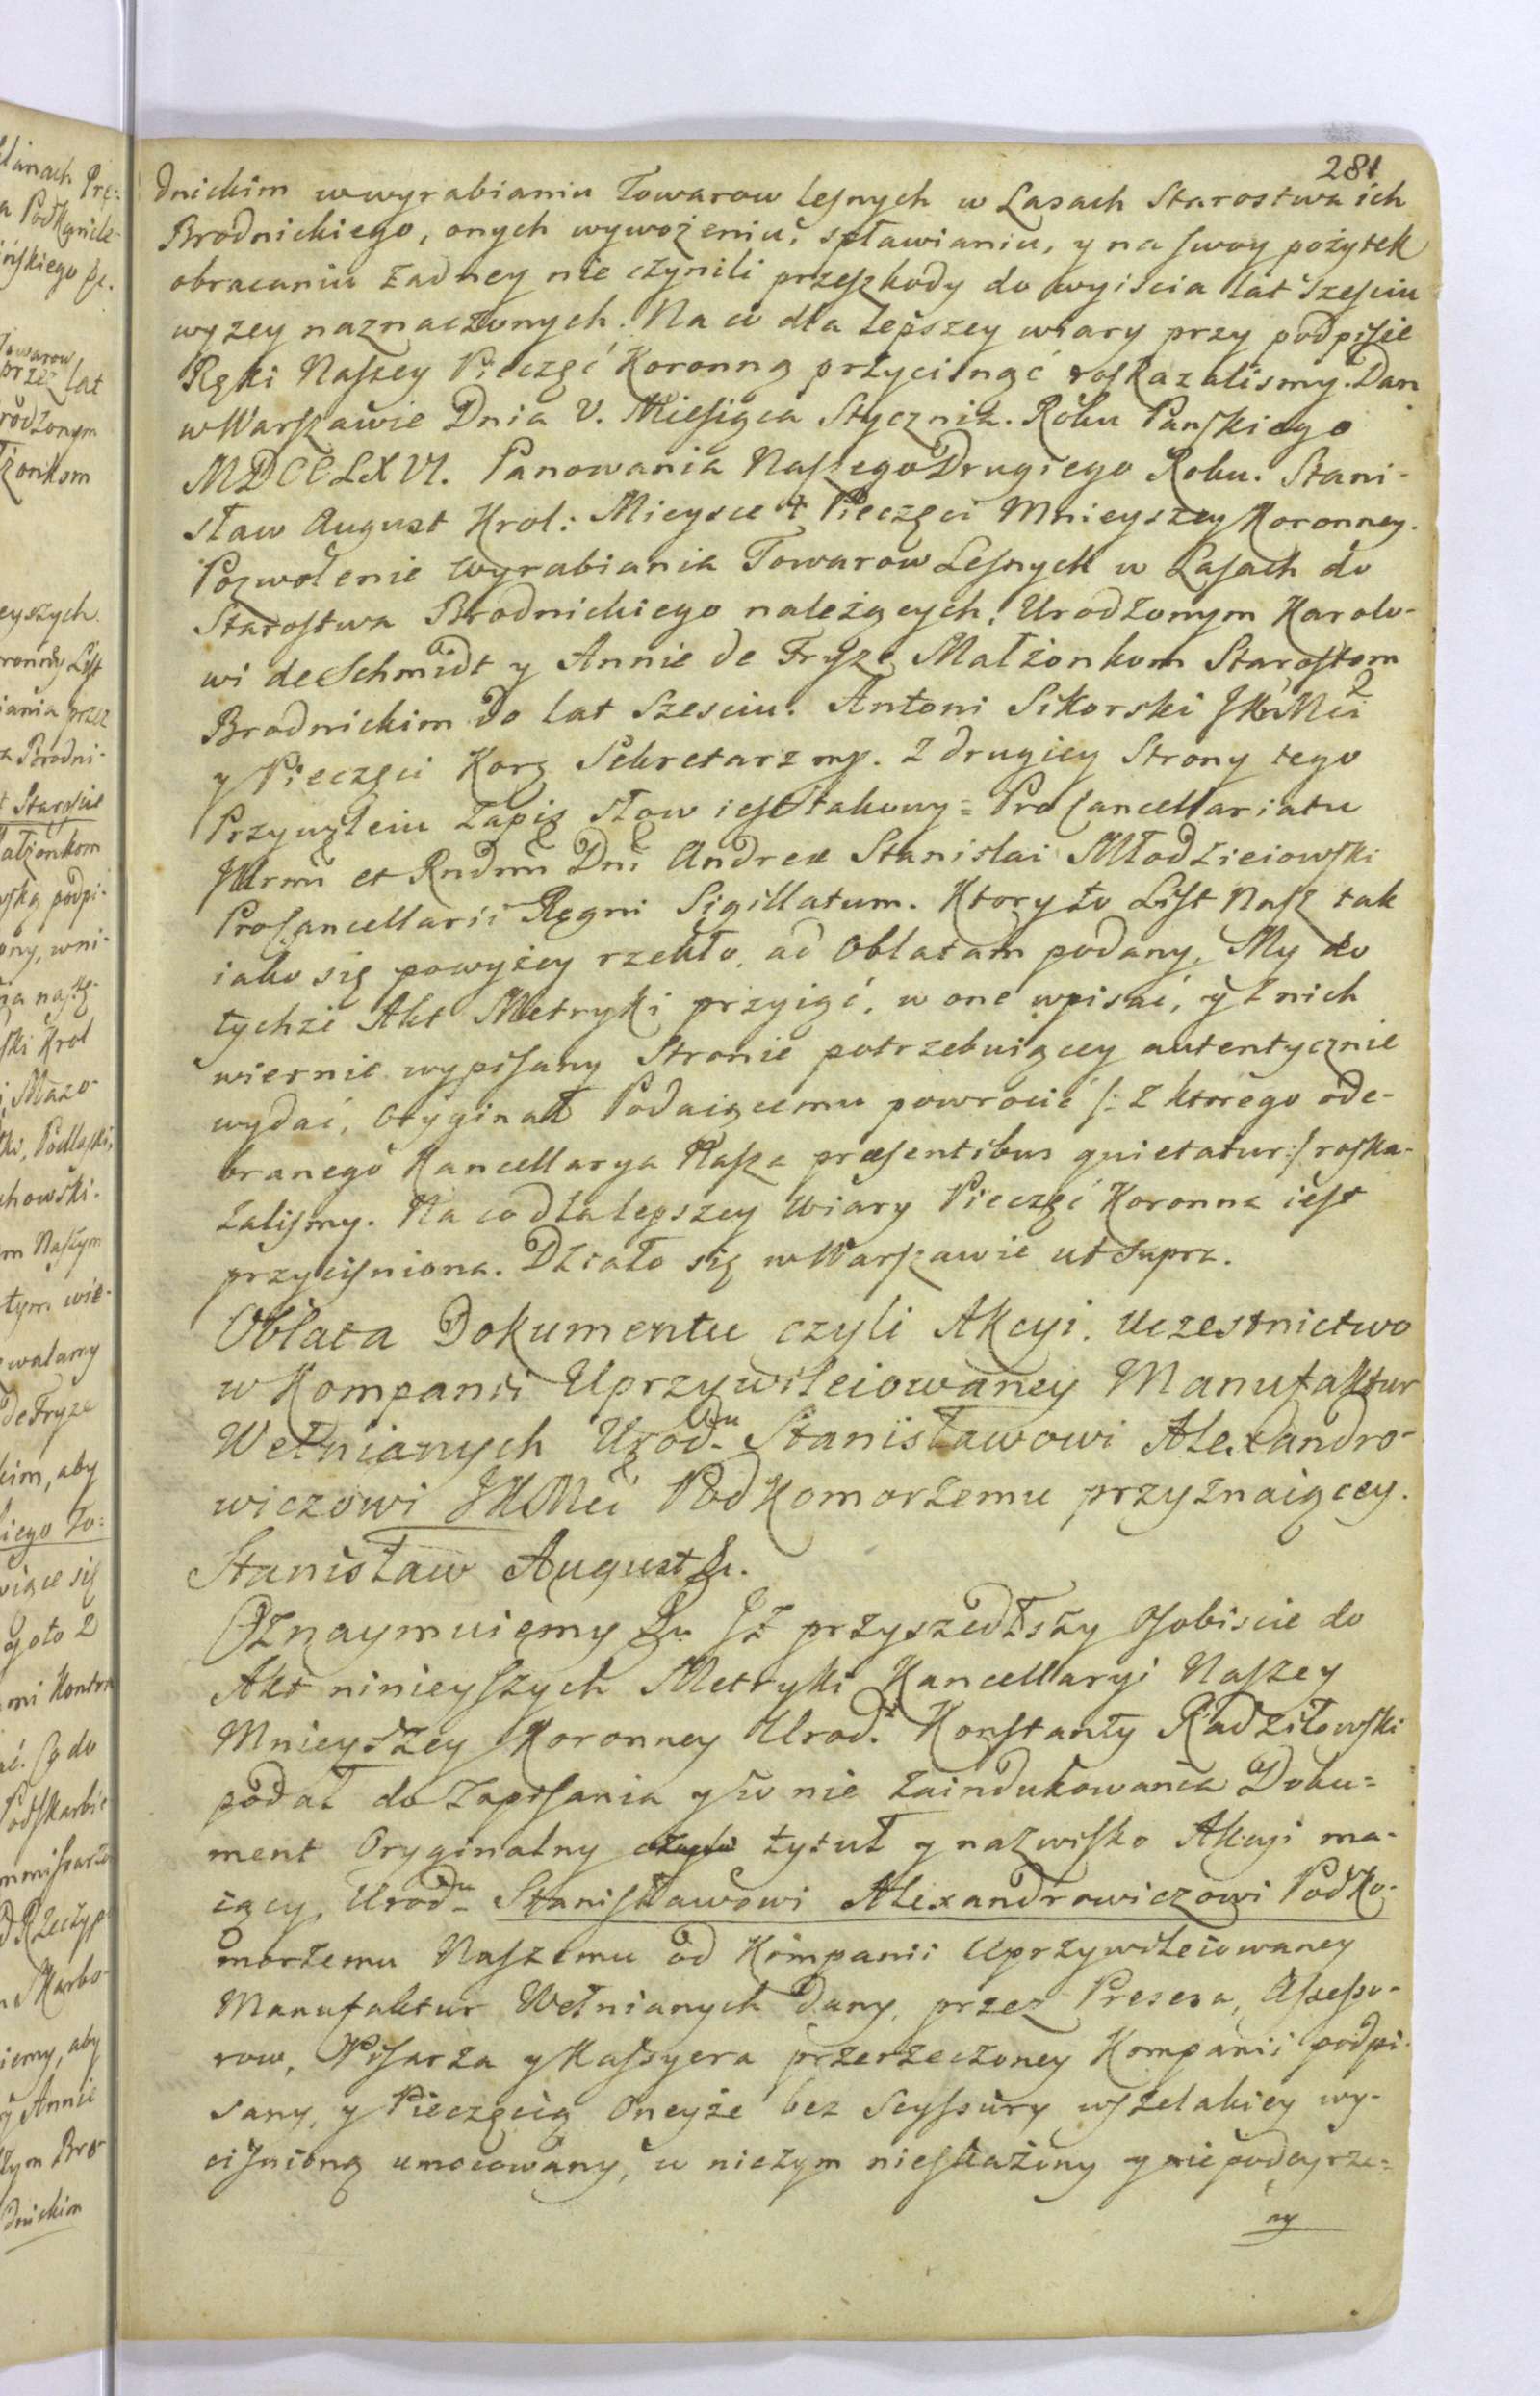 281
dnickim w wyrabianiu Towarow lesnych w Lasach Starostwa ich
Brodnickiego, onych wywożeniu, spławianiu, y na swoy pożytek
obracaniu żadney nie czynili przeszkody do wyiścia lat Sześciu
wyzey naznaczonych. Na co dla lepszey wiary przy podpisie
Ręki Naszey Pieczęć Koronną przycisnąć roskazalismy. Dan
w Warszawie Dnia V. Miesiąca Stycznia. Roku Panskiego
MDCCLXVI. Panowania Naszego Drugiego Roku. Stani-
sław August Krol: Mieysce + Pieczęci Mnieyszey Koronney.
Pozwolenie wyrabiania Towarow Lesnych w Lasach do
Starostwa Brodnickiego należących, Urodzonym Karolo-
wi de Schmidt y Annie de Fryze Małżonkom Starostom
Brodnickim do lat Szesciu. Antoni Sikorski JKMci
y Pieczęci Korą Sekretarz mp. Z drugiey Strony tego
Przywileiu Zapis słow iest takowy = Procancellariatu
Illrmi et Rndmi Dni Andreæ Stanislai Młodzieiowski
Procancellarii Regni Sigillatum. Ktory to List Nasz tak
iako się powyżey rzekło, ad Oblatam podany, My do
tychże Akt Metryki przyiąć, w one wpisać, y z nich
wiernie wypisany Stronie potrzebuiącey autentycznie
wydać, Oryginał Podaiącemu powrocić /: z ktorego ode-
branego Kancellarya Nasza præsentibus quietatur :/ roska-
zalismy. Na co dla lepszey Wiary Pieczęć Koronna iest
przycisniona. Działo się w Warszawie ut supra.
Oblata Dokumentu czyli Akcyi. Uczestnictwo
w Kompanii Uprzywileiowaney Manufaktur
Wełnianych Urod-u Stanisławowi Alexandro-
wiczowi JKMci PodKomorzemu przyznaiącey.
Stanisław August &.
Oznaymuiemy &. Jż przyszedłszy Osobiscie do
Akt ninieyszych Metryki Kancellaryi Naszey
Mnieyszey Koronney Urod. Konstanty Radziłowski
podał do Zapisania y w nie zaindukowania Doku=
ment Oryginalny tytuł y nazwisko Akcyi ma-
iący, Urod-u Stanisławowi Alexandrowiczowi PodKo-
morzemu Naszemu od Kompanii Uprzywileiowaney
Manufaktur Wełnianych dany, przez Presesa, Assesso-
row, Pisarza y Kassyera przerzeczoney Kompanii podpi-
sany, y Pieczęcią Oneyże bez Scyssury wszelakiey wy-
cisnioną umocowany, w niczym nieskażony y niepodeyrze=
ny